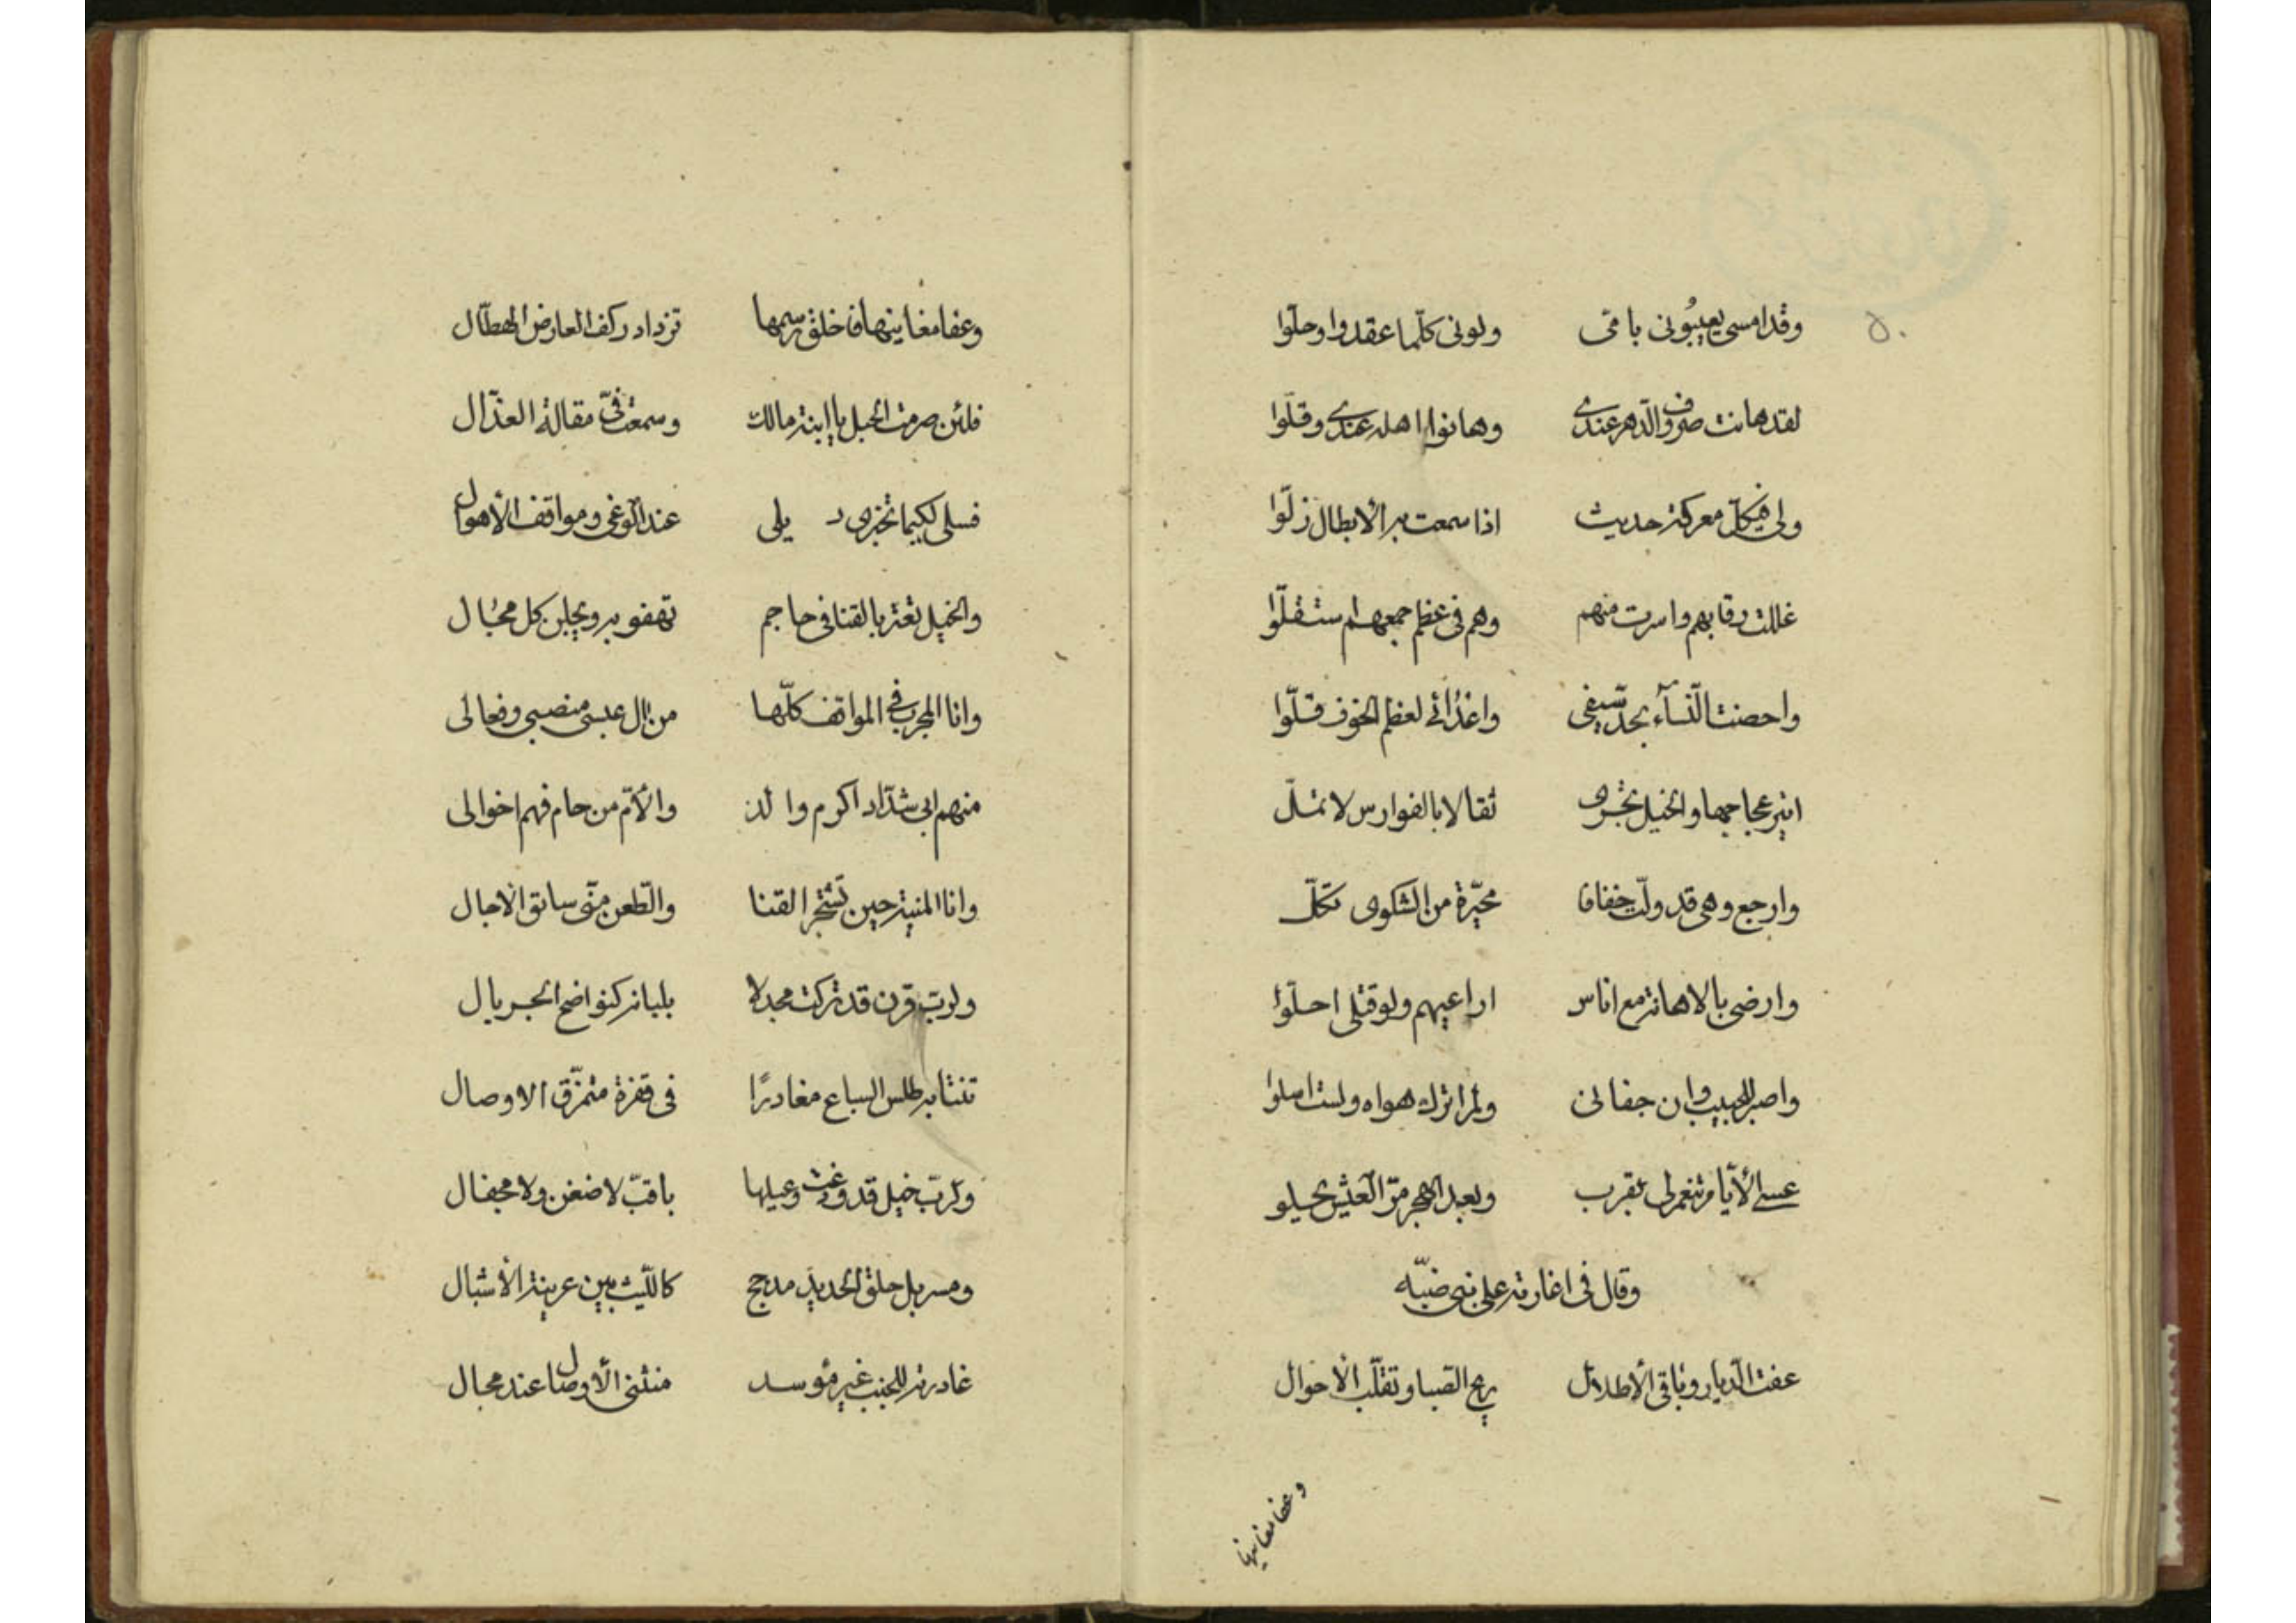 ٥٠
وقد امسى يعيبُونى بامّى ولونى كلّما عقدوا وحلّوا
لقد هانت صروف الدّهر عندى وهانوا اهله عندى وقلّوا
ولى فيكلّ معركة حديث اذا سمعت به الأبطال زلّوا
غللت رقابهم واسرت منهم وهم فى عظم جمعهم استقلّوا
واحصنت النّسآء بحدّ سيفى واعدائى لعظم الخوف قلّوا
اثير عجاجها والخيل تجرى ثقالا بالفوارس لا تملّ
وارجع وهى قد ولّت خفافا محيّرة من الشكوى تكلّ
وارضى بالاهانة مع اناس اراعيهم ولو قتلى احلّوا
واصبر للحبيب وان جفانى ولم اترك هواه ولست اسلوا
عسى الأيّام تنعم لى بقرب وبعد الهجر مرّ العيش يحلو
وقال فى اغارته على بنى ضبّه
عفت الدّيار وباقى الأطلال ريح الصّبا وتقلّب الأحوال
وعفا مغانيها
وعفا مغانيها فاخلق رسمها تزداد ركف العارض الهطّال
فلئن صرمت الحبل يا ابنة مالك وسمعت فىّ مقالة العذّال
فسلى لكيما تخبرى د يلى عند الوغى ومواقف الأهوال
والخيل تعثر بالقنا فى جاحم تهفو به ويجلن كل مجال
وانا المجرب فى المواقف كلّها من آل عبس منصبى وفعالى
منهم ابى شدّاد اكرم والد والأمّ من حام فهم اخوالى
وانا المنية حين تشتجر القنا والطّعن منّى سابق الآجال
ولربّ قرن قد تركت مجدلا بلبانه كنواضح الجريال
تنتابه طلس السباع مغادرًا فى قفرة متمزّق الاوصال
ولربّ خيل قد وزعت رعيلها باقبّ لا ضغن ولا مجفال
ومسربل حلق الحديد مدجج كاللّيث بين عرينة الأشبال
غادرته للجنب غير مؤسد متثنى الأوصال عند مجال